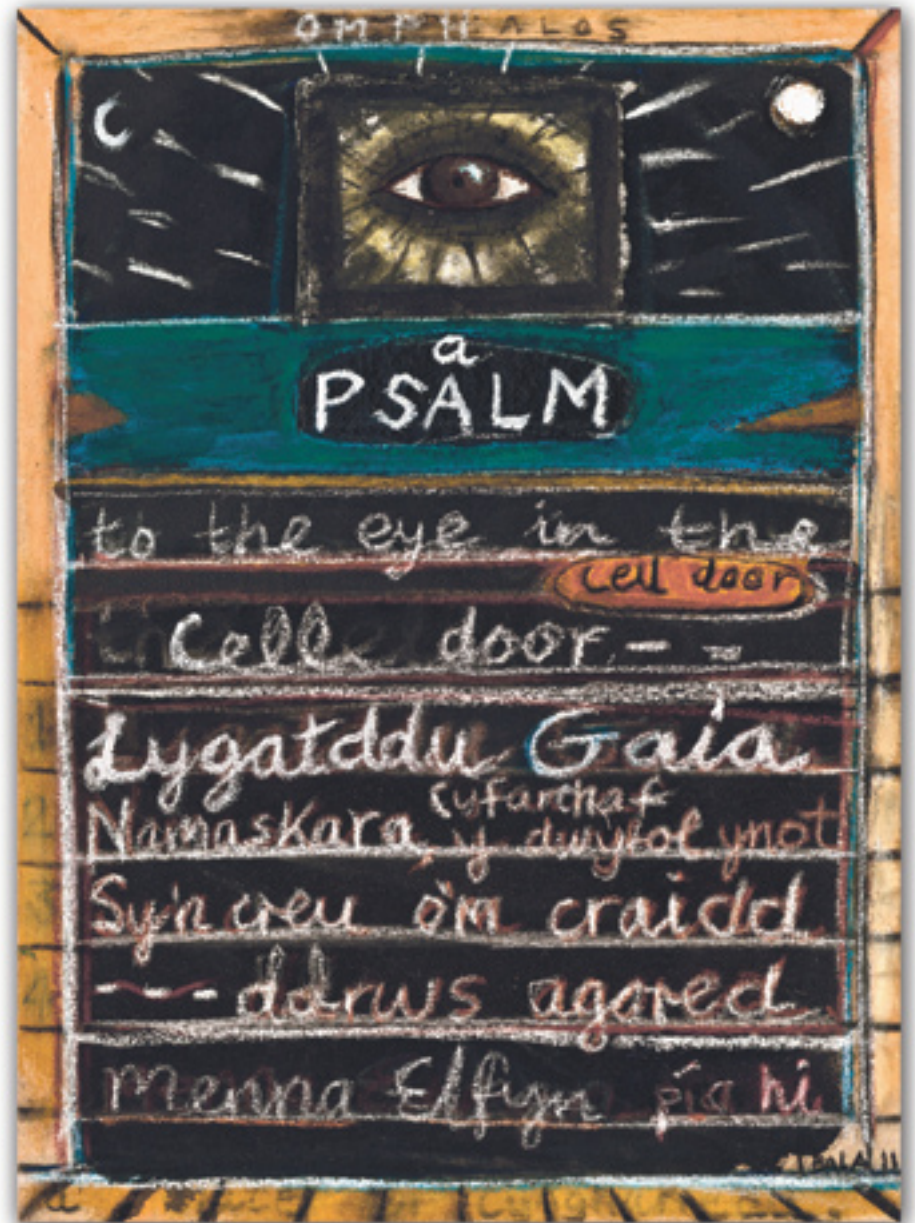 OMPHALOS
a
PSALM
to the eye in the
cell door
Cell door - -
Lygatddu Gaia
Namaskara, cyfarchaf
y dwyfol ynot
Sy'n creu o'm craidd
--- ddrws agored
Menna Elfyn pia hi